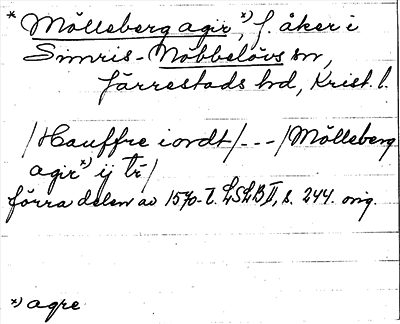 * Mölleberg agir *), f. åker i
Simris-Nöbbelövs sn,
Järrestads hd, Krist. l.
/Hauffre iordt/---/Mölleberg
agir *) ij tr/
förra delen av 1570-t. LSLB II, s. 244. orig.
*) agre